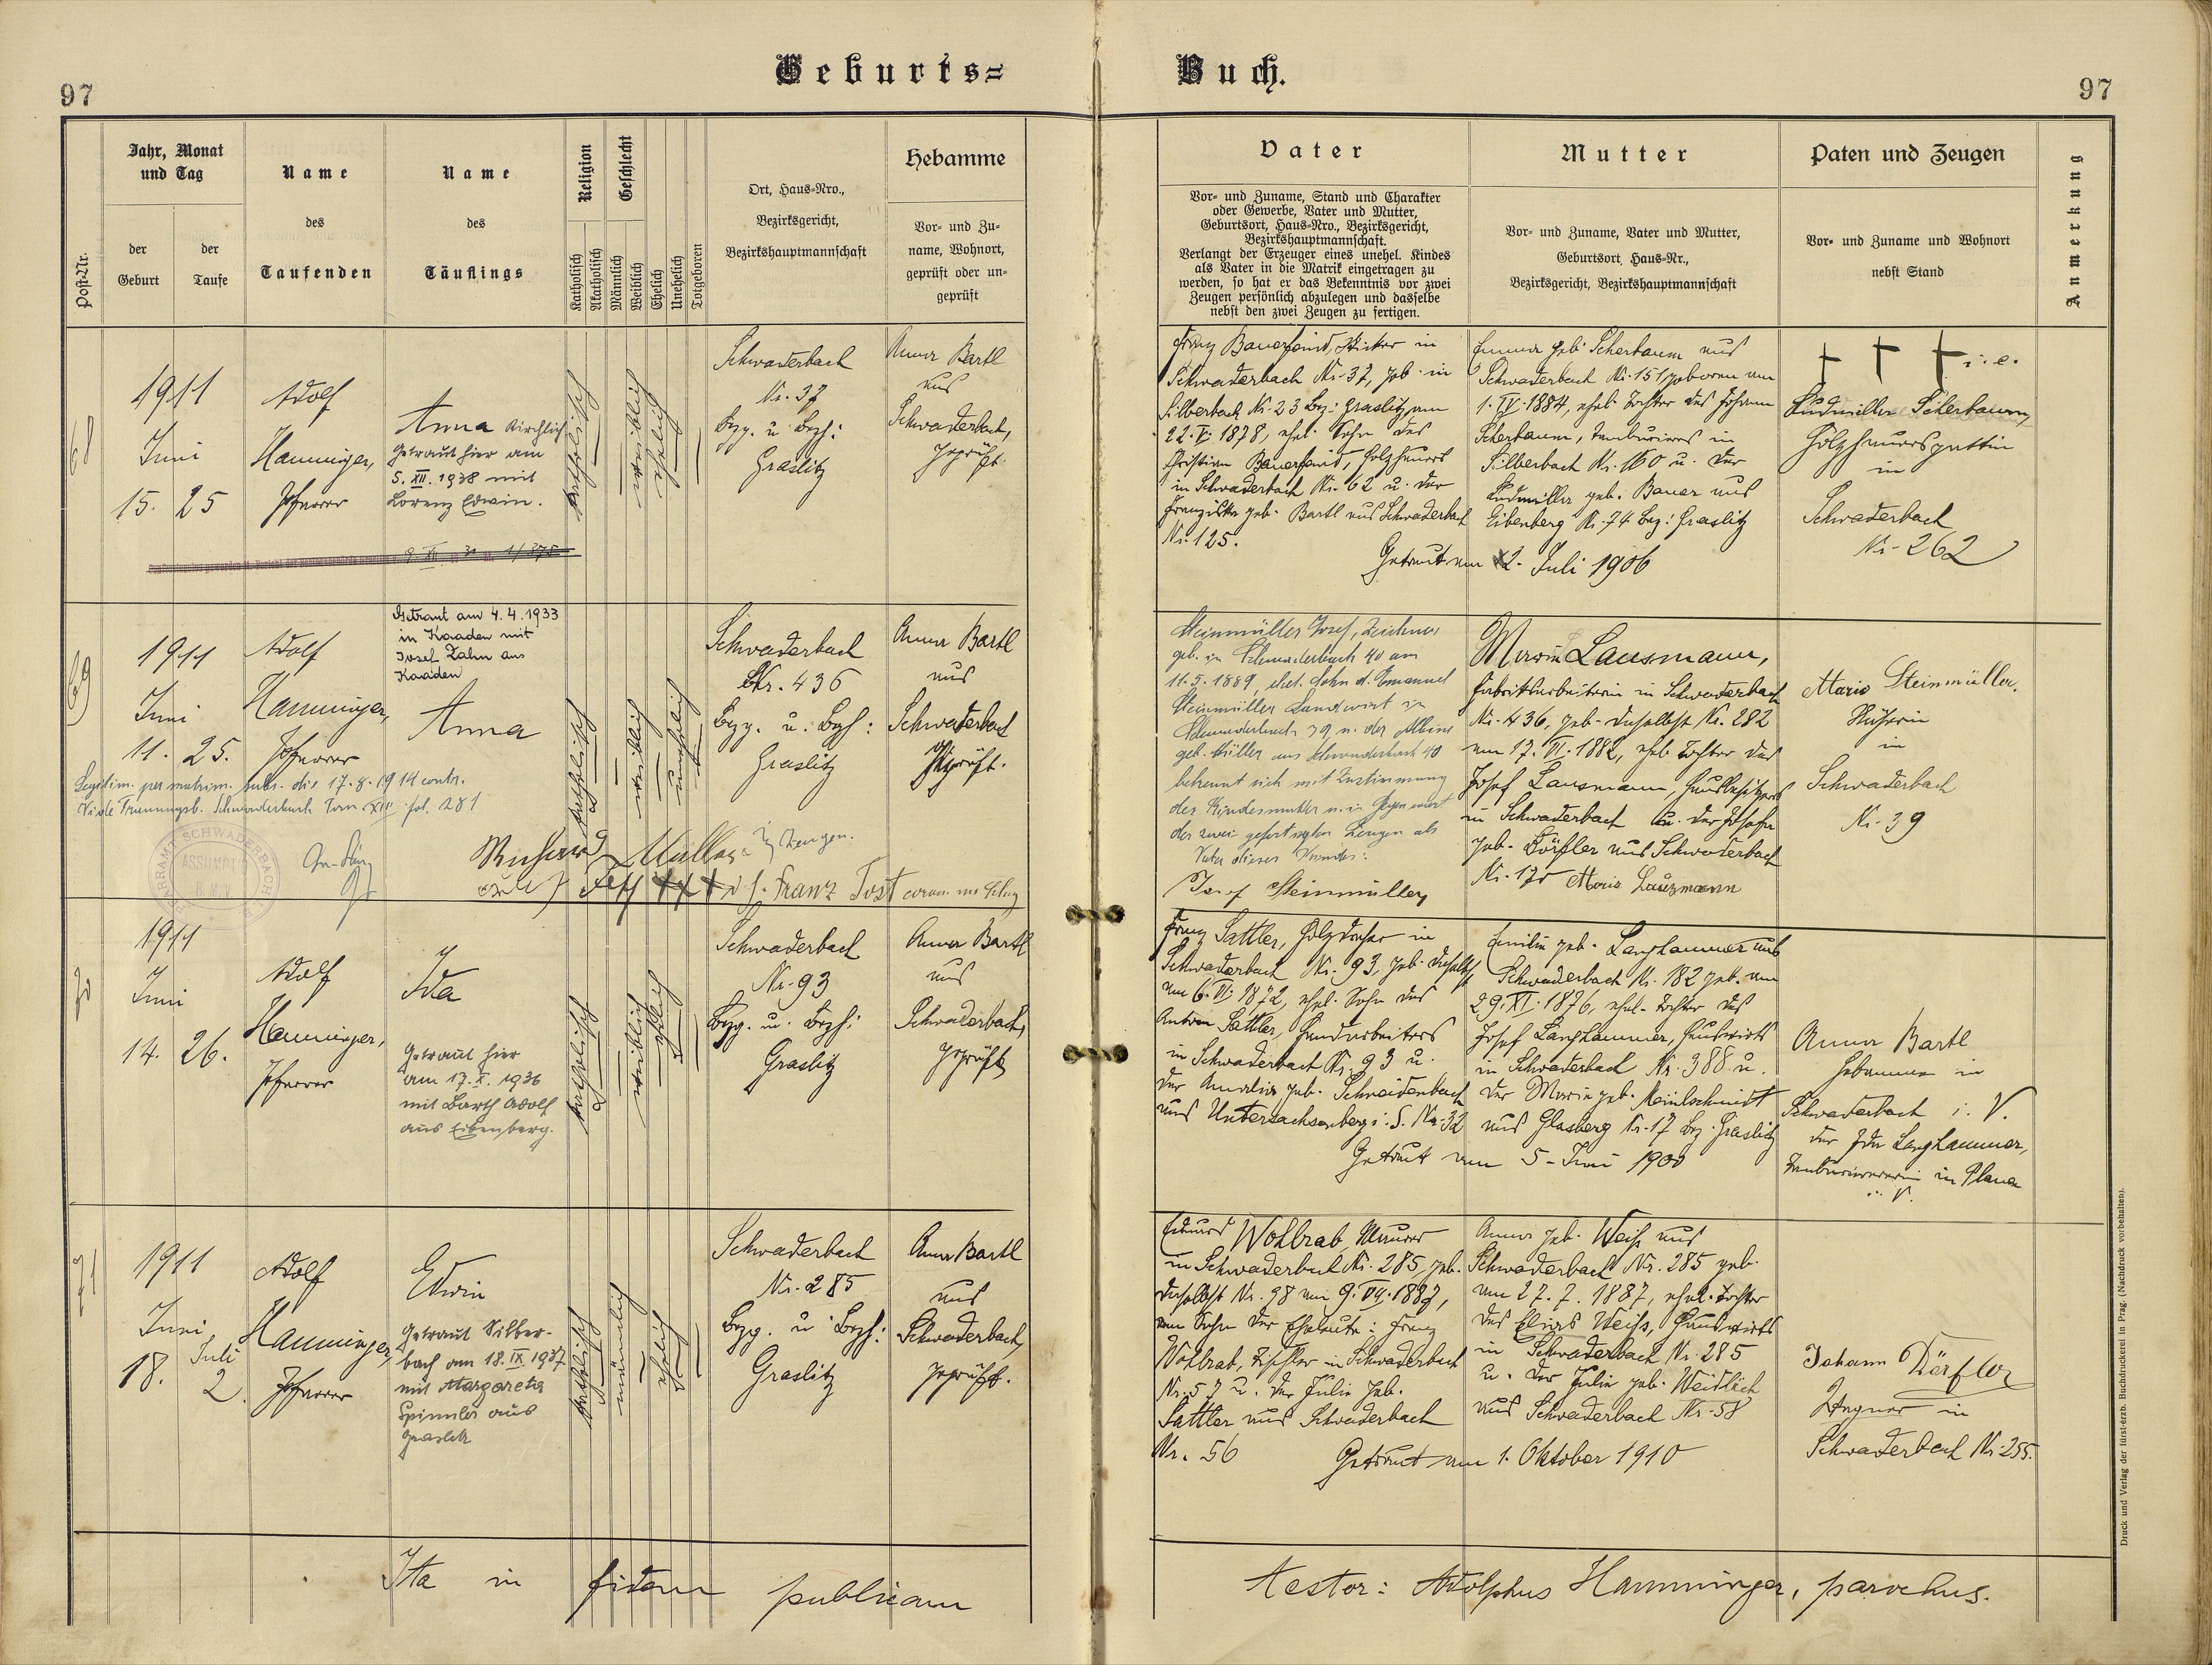 97
Geburts=
Buch.
97
Post-Nr.
Jahr, Monat
und Tag
der
Geburt
der
Taufe
Name
des
Taufenden
Name
des
Täuflings
Religion
Katholisch
Akatholisch
Geschlecht
Männlich
Weiblich
Ehelich
Unehelich
Totgeboren
Ort, Haus-Nro.,
Bezirksgericht,
Bezirkshauptmannschaft
Hebamme
Vor- und Zu-
name, Wohnort,
geprüft oder un-
geprüft
Vater
Vor- und Zuname, Stand und Charakter
oder Gewerbe, Vater und Mutter,
Geburtsort, Haus-Nro., Bezirksgericht,
Bezirkshauptmannschaft.
Verlangt der Erzeuger eines unehel. Kindes
als Vater in die Matrik eingetragen zu
werden, so hat er das Bekenntnis vor zwei
Zeugen persönlich abzulegen und dasselbe
nebst den zwei Zeugen zu fertigen.
Mutter
Vor- und Zuname, Vater und Mutter,
Geburtsort, Haus-Nr.,
Bezirksgericht, Bezirkshauptmannschaft
Paten und Zeugen
Vor- und Zuname und Wohnort
nebst Stand
Anmerkung
68
1911
Juni
15. 25
Adolf
Hamminger,
Pfarrer
Anna Kirchlich
Getraut hier am
5. XII. 1938 mit
Lorenz Edwin.
katholisch
weiblich
ehelich
Schwaderbach
Nr. 37
Bzg. u. Bzh:
Graslitz
Anna Bartl
aus
Schwaderbach,
geprüft.
Franz Bauerfeind, Sticker in
Schwaderbach Nr. 37, geb. in
Silberbach Nr. 23 Bez: Graslitz, am
22. V. 1878, ehel. Sohn des
Christian Bauerfeind, Holzhauers
in Schwaderbach Nr. 62 u. der
Franziska geb. Bartl aus Schwaderbach
Nr. 125.
Emma geb. Scherbaum aus
Schwaderbach Nr. 151, geboren am
1. IV. 1884, ehel. Tochter des Johann
Scherbaum, Tambouriers in
Silberbach Nr. 160 u. der
Ludmilla geb. Bauer aus
Eibenberg Nr. 74 Bez: Graslitz
Getraut am 2. Juli 1906
† † † i. e.
Ludmilla Scherbaum,
Holzhauersgattin
in
Schwaderbach
Nr. 262
69
1911
Juni
11. 25.
Adolf
Hamminger,
Pfarrer
Getraut am 4.4.1933
in Kaaden mit
Josef Zahn aus
Kaaden
Anna
katholisch
weiblich
unehelich
Schwaderbach
Nr. 436
Bzg. u. Bzh:
Graslitz
Anna Bartl
aus
Schwaderbach
geprüft.
Legitim. per matrim. subs. die 17.8.1914 contr.
Vide Trauungsb. Schwaderbach Tom XIII fol. 281
PFARRAMT SCHWADERBACH
ASSUMPT.
B.M.V.
Müller Zeugen.
††† d. h. Franz Tost
Steinmüller Josef, Zeichner
geb. in Schwaderbach 40 am
11.5.1889, ehel. Sohn d. Emanuel
Steinmüller Landwirt in
Schwaderbach 39 u. der Albine
geb. Müller aus Schwaderbach 40
bekennt sich mit Zustimmung
der Kindesmutter u. in Gegenwart
der zwei gefertigten Zeugen als
Vater dieses Kindes:
Josef Steinmüller
Maria Lausmann,
Fabriksarbeiterin in Schwaderbach
Nr. 436, geb. daselbst Nr. 282
am 17. VI. 1882, ehel. Tochter des
Josef Lausmann, Hausbesitzers
in Schwaderbach u. der Josefa
geb. Dörfler aus Schwaderbach
Maria Lausmann
Marie Steinmüller,
in
Schwaderbach
Nr. 39
70
1911
Juni
14. 26.
Adolf
Hamminger,
Pfarrer
Ida
Getraut hier
am 17. X. 1936
mit Barth Adolf
aus Eibenberg.
katholisch
weiblich
ehelich
Schwaderbach
Nr. 93
Bzg. u. Bzh:
Graslitz
Anna Bartl
aus
Schwaderbach,
geprüft
Franz Sattler, Holzdreher in
Schwaderbach Nr. 93, geb. daselbst
am 6. VI. 1872, ehel. Sohn des
Anton Sattler, Handarbeiters
in Schwaderbach Nr. 93 u.
der Amalia geb. Schneidenbach
aus Untersachsenberg i. S. Nr. 32
Emilie geb. Langhammer aus
Schwaderbach Nr. 182 geb. am
29. XI. 1876, ehel. Tochter des
Josef Langhammer, Hauswirts
in Schwaderbach Nr. 388 u.
der Maria geb. Meinlschmidt
aus Glasberg Nr. 17 Bez. Graslitz
Getraut am 5. Juni 1900
Anna Bartl
Hebamme in
Schwaderbach i. V.
der Ida Langhammer,
Tambouriererin in Plauen
i. V.
71
1911
Juni, Juli
18. 2.
Adolf
Hamminger,
Pfarrer
Edwin
Getraut Silber-
bach am 18. IX. 1937
mit Margareta
Spinnler aus
Graslitz
katholisch
männlich
ehelich
Schwaderbach
Nr. 285
Bzg. u. Bzh:
Graslitz
Anna Bartl
aus
Schwaderbach,
geprüft.
Eduard Wohlrab, Maurer
in Schwaderbach Nr. 285, geb.
daselbst Nr. 98 am 9. VII. 1887,
ein Sohn der Eheleute: Franz
Wohlrab, Tischler in Schwaderbach
Nr. 57 u. der Julie geb.
Sattler aus Schwaderbach
Nr. 56
Anna geb. Weiß aus
Schwaderbach Nr. 285 geb.
am 27. 7. 1887, ehel. Tochter
des Elias Weiß, Hauswirts
in Schwaderbach Nr. 285
u. der Julie geb. Weidlich
aus Schwaderbach Nr. 58
Getraut am 1. Oktober 1910
Johann Dörfler
Wagner in
Schwaderbach Nr. 255.
Ita in fidem publicam
testor: Adolphus Hamminger, parochus.
Druck und Verlag der fürst-erzb. Buchdruckerei in Prag. (Nachdruck vorbehalten).